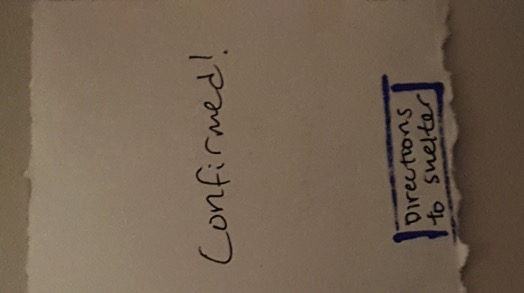 Confirmed!
Directions
to shelter